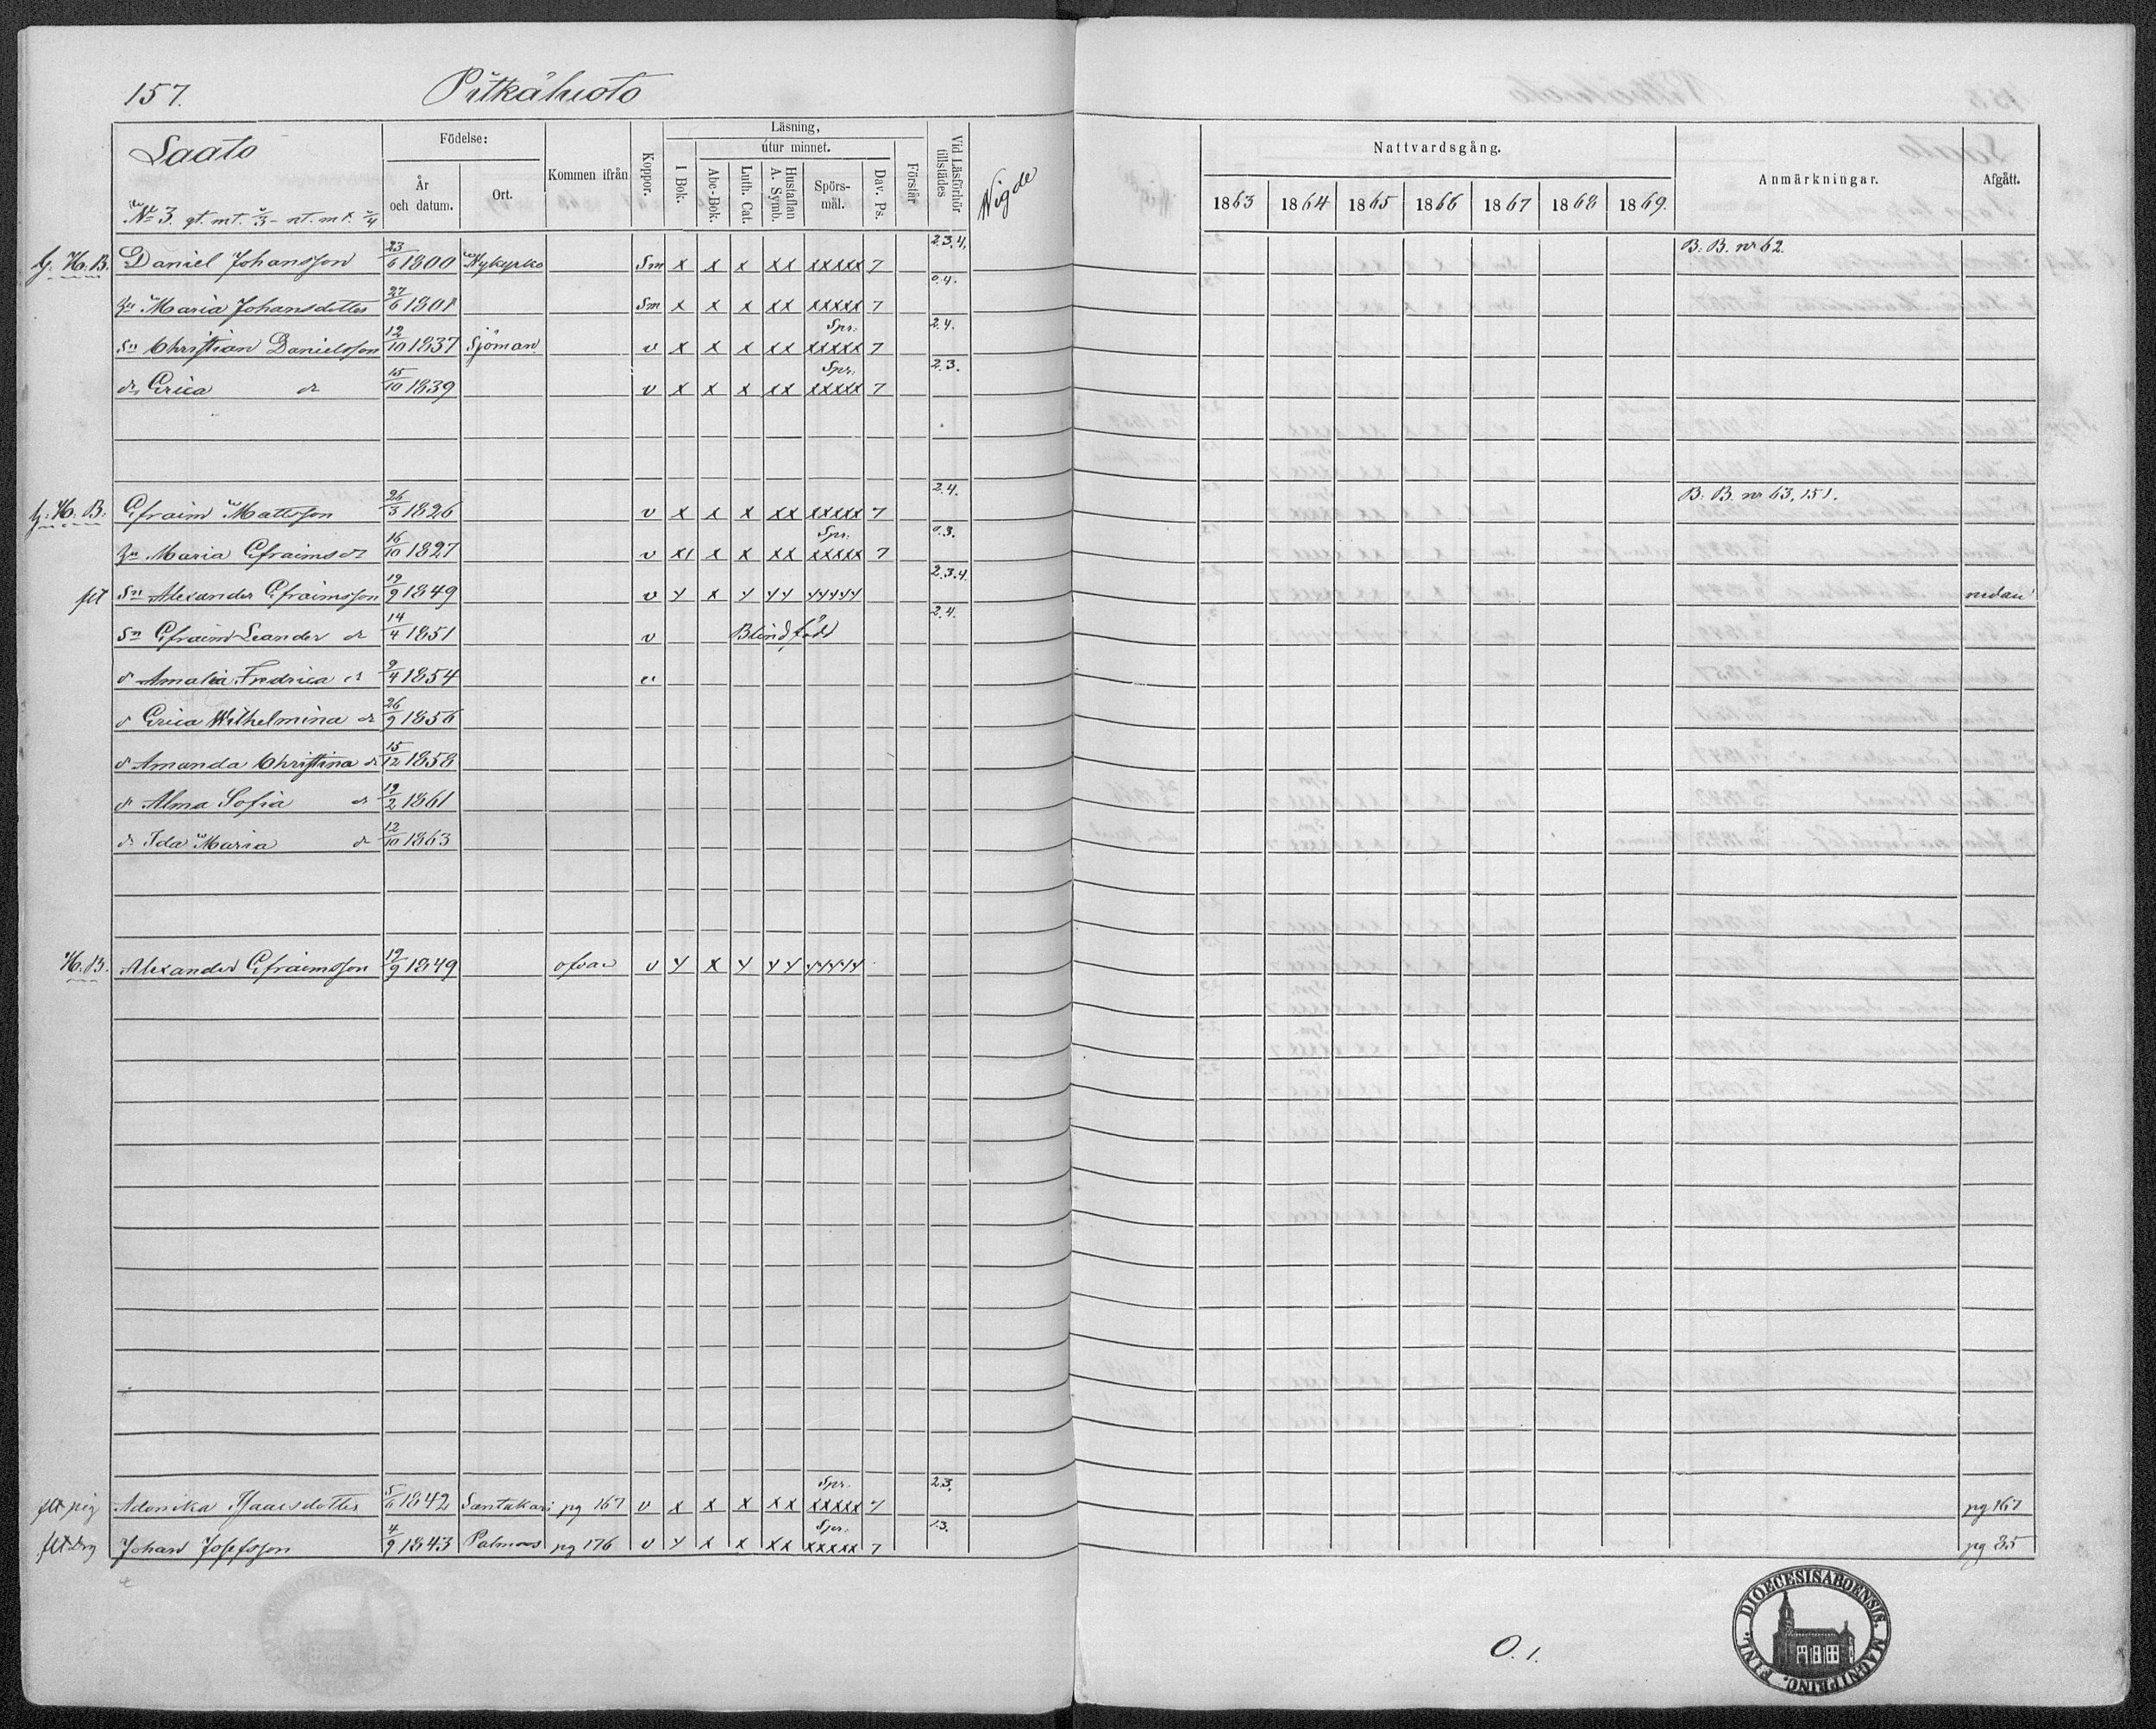 157. Pitkäluoto
Laato
No 3. gt. mt. 2/3 - nt. mt. 2/4
Födelse:
År och datum.
Ort.
Kommen ifrån
Koppor.
Läsning,
I Bok.
utur minnet.
Abc-Bok.
Luth. Cat.
Hustaflan A. Symb.
Spörsmål.
Dav. Ps.
Förstår
Vid Läsförhör tillstädes
Vigde
Nattvardsgång.
1863 1864 1865 1866 1867 1868 1869.
Anmärkningar.
Afgått.
H. B. Daniel Johansson 23/6 1800 Nykyrko Sm x x x xx xxxxx 7 2.3.4. B. B. nr 62.
Maria Johansdotter 27/6 1801 Sm x x x xx xxxxx 7 0.4.
Sn Christian Danielsson 12/10 1837 Sjöman v x x x xx Spr. xxxxx 7 2.4.
dr Erica dr 15/10 1839 v x x x xx Spr. xxxxx 7 2.3.
H. B. Efraim Mattsson 26/3 1826 v x x x xx xxxxx 7 2.4. B. B. nr 63, 151.
Maria Efraimsdr 16/10 1827 v x x x xx Spr. xxxxx 7 0.3.
Sn Alexander Efraimsson 19/9 1849 v 2.3.4. nedan
Sn Efraim Leander dr 14/4 1851 v Blindfödd 2.4.
d Amalia Fredrica dr 9/4 1854 v
d Erica Wilhelmina dr 26/9 1856
d Amanda Christina dr 15/12 1858
d Alma Sofia dr 19/2 1861
dr Ida Maria dr 12/10 1863
H. B. Alexander Efraimsson 19/9 1849 ofvan v
pig Adonika Isaacsdotter 5/6 1842 Santakari pg 167 v x x x xx Spr. xxxxx 7 2.3. pg 167
drg Johan Josefsson 4/9 1843 Palmos pg 176 v x x xx Spr. xxxxx 7 1.3. pg 35
O. 1.
DIOECESIS ABOENSIS. MAGNI PRINC. FINL.